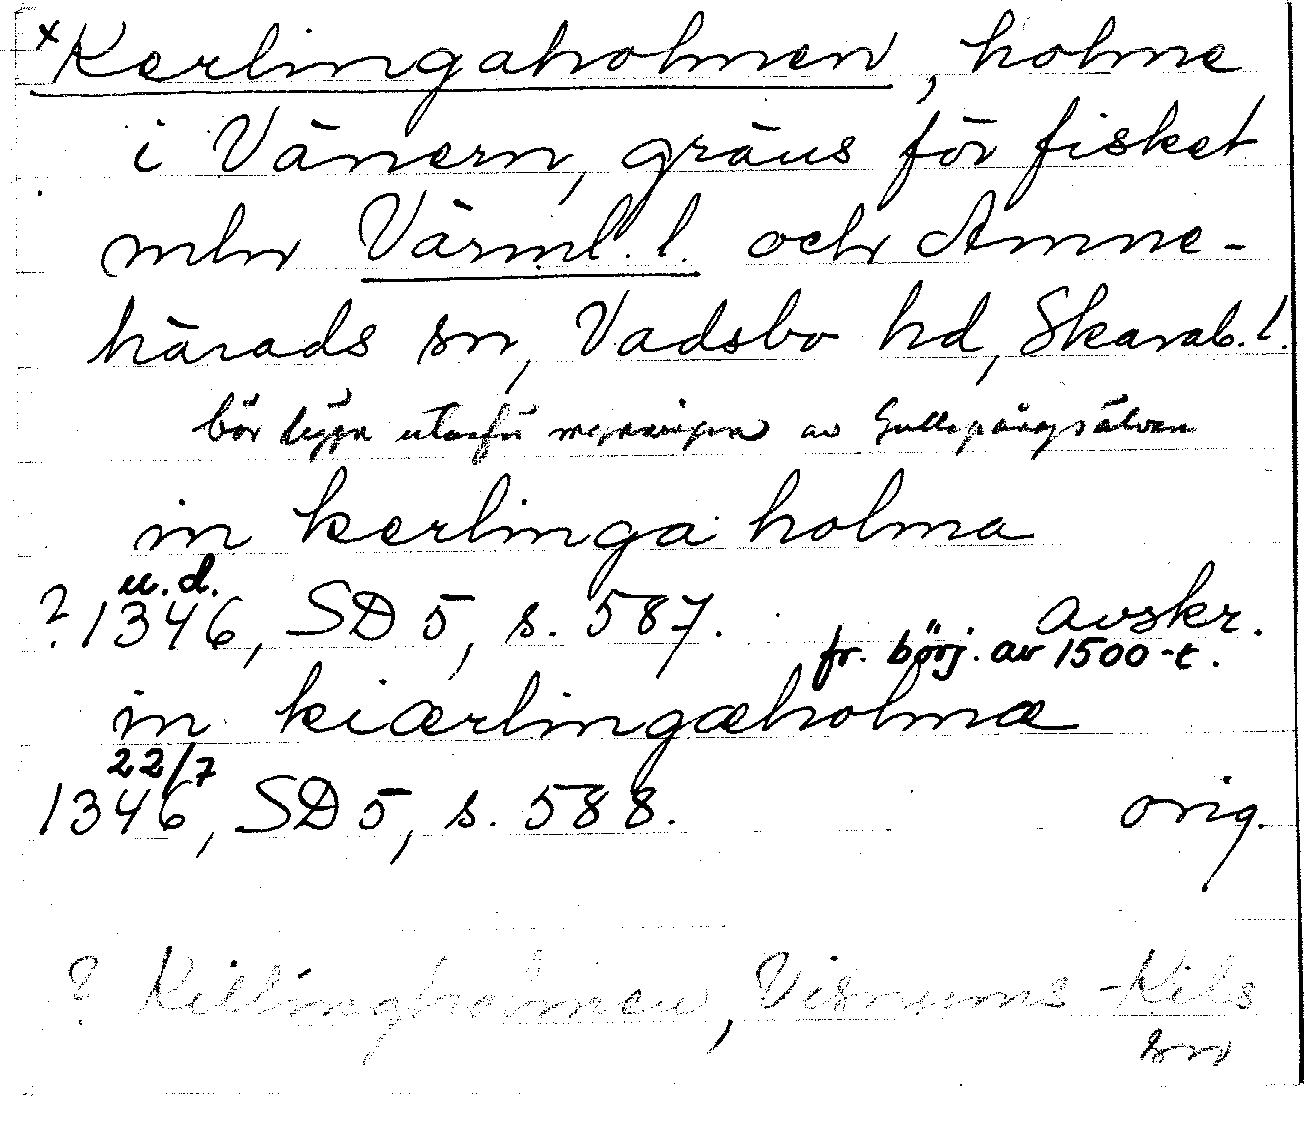 ×Kerlingaholmen, holme
i Vänern, gräns för fisket
mln Värml. l. och Amne-
härads sn, Vadsbo hd, Skarab. l.
bör ligga utanför mynningen av Gullspångsälven
in kerlinga holma
u.d.
? 1346, SD 5, s. 587. avskr.
fr. börj. av 1500-t.
in kiærlingæholmæ
22/7
1346, SD 5, s. 588. orig.
? Killingholmen, Visnums-Kils
sn